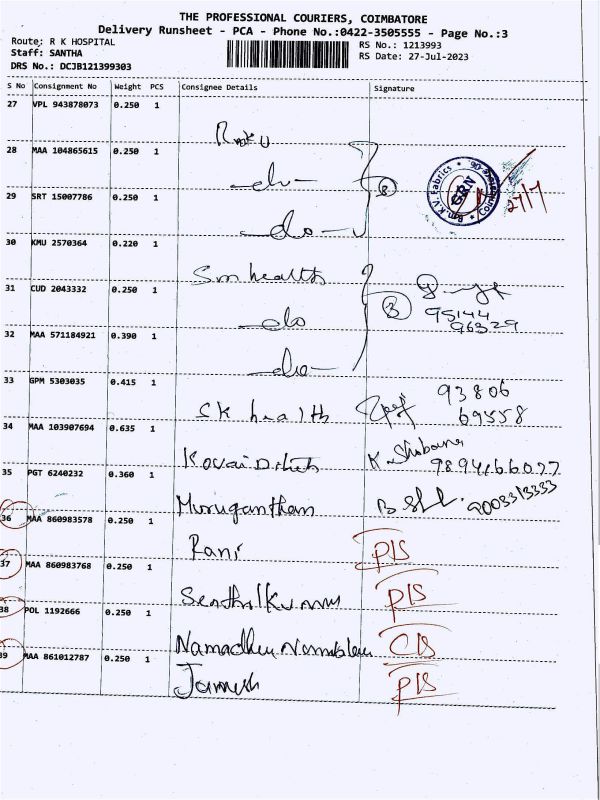 THE PROFESSIONAL COURIERS, COIMBATORE
Delivery Runsheet - PCA - Phone No.:0422-3505555 - Page No.:3
Route: R K HOSPITAL
RS No.: 1213993
Staff: SANTHA
RS Date: 27-Jul-2023
DRS No.: DCJB121399303
S No Consignment No Weight PCS Consignee Details Signature
27 VPL 943878073 0.250 1
28 MAA 104865615 0.250 1
-do-
K.V. Fabrics GRN
27/7
29 SRT 15007786 0.250 1
-do-
30 KMU 2570364 0.220 1
Sm health
31 CUD 2043332 0.250 1
-do-
3
95144
96329
32 MAA 571184921 0.390 1
-do-
33 GPM 5303035 0.415 1
SK health
93806
69558
34 MAA 103907694 0.635 1
Kovai
K. Shobana
35 PGT 6240232 0.360 1
Murugantham
36 MAA 860983578 0.250 1
Rani
37 MAA 860983768 0.250 1
Senthil Kumar
38 POL 1192666 0.250 1
39 MAA 861012787 0.250 1